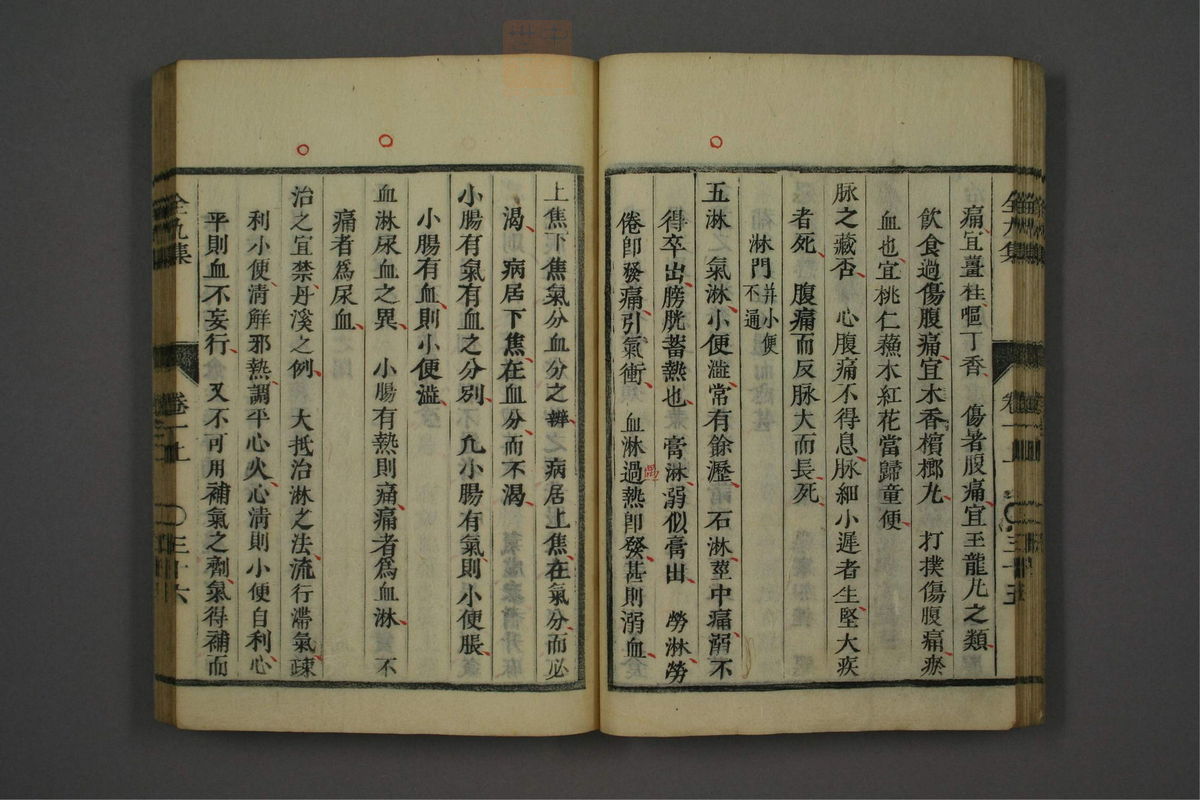 痛宜薑桂嘔丁香　傷暑腹痛宜玉龍丸之類
飲食過傷腹痛宜木香檳榔丸　打撲傷腹痛瘀
血也宜桃仁蘓木紅花當歸童便
脉之藏否　心腹痛不得息脉細小遲者生堅大疾
者死　腹痛而反脉大而長死
淋門 并小便不通
五淋　氣淋小便澁常有餘瀝　石淋莖中痛溺不
得卒出　膀胱蓄熱也　膏淋溺似膏出　勞淋勞
倦即發痛引氣衝　血淋過熱即發甚則溺血
上焦下焦氣分血分之辨　病居上焦在氣分而必
渴　病居下焦在血分而不渴
小腸有氣有血之分別　凢小腸有氣則小便脹
小腸有血則小便澁
血淋尿血之異　小腸有熱則痛痛者爲血淋　不
痛者爲尿血
治之宜禁丹溪之例　大抵治淋之法流行滯氣疎
利小便清解邪熱調平心火心清則小便自利心
平則血不妄行　又不可用補氣之劑氣得補而
全九集
卷一上
三十六
全九集
卷一上
三十五